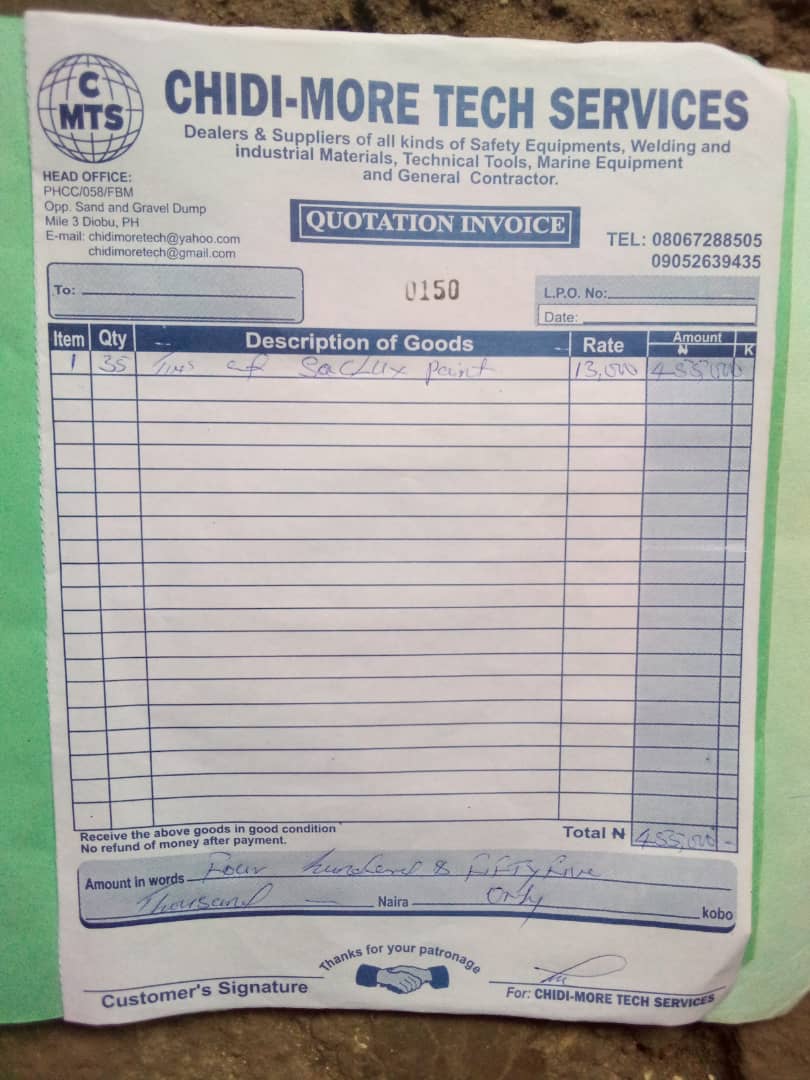 C
MTS
CHIDI-MORE TECH SERVICES
Dealers & Suppliers of all kinds of Safety Equipments, Welding and
industrial Materials, Technical Tools, Marine Equipment
and General Contractor.
HEAD OFFICE:
PHCC/058/FBM
Opp. Sand and Gravel Dump
Mile 3 Diobu, PH
E-mail: chidimoretech@yahoo.com
chidimoretech@gmail.com
QUOTATION INVOICE
TEL: 08067288505
09052639435
To:
0150
L.P.O. No:
Date:
Item Qty Description of Goods Rate Amount ₦ K
1 35 Tins of Saclux paint 13,000 455,000
Receive the above goods in good condition
No refund of money after payment.
Total ₦ 455,000 -
Amount in words Four hundred & Fifty Five
Thousand — Naira Only kobo
Thanks for your patronage
Customer's Signature
For: CHIDI-MORE TECH SERVICES